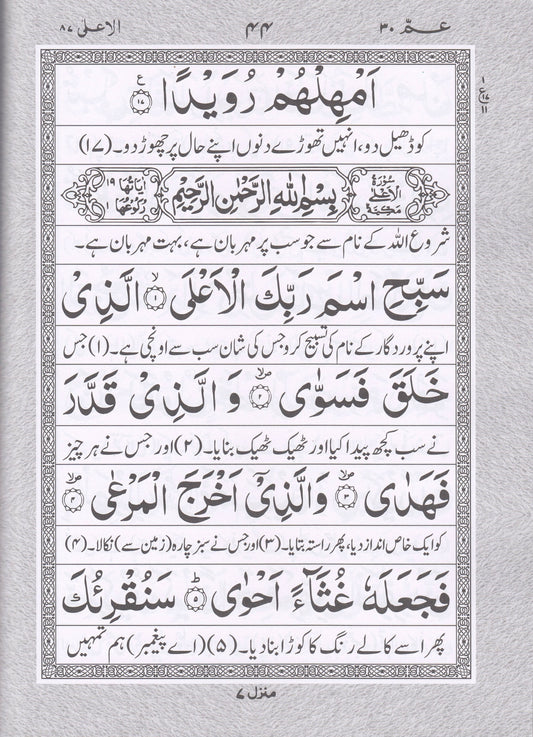 عـم ۳۰ ۴۴ الاعلیٰ ۸۷
اَمْهِلْهُمْ رُوَيْدًا ۱۷ ع
۱
ع ۱۷
۱۱
کو ڈھیل دو، انہیں تھوڑے دنوں اپنے حال پر چھوڑ دو۔ (۱۷)
سُوْرَةُ الْاَعْلٰى مَكِّيَّةٌ بِسْمِ اللّٰهِ الرَّحْمٰنِ الرَّحِيْمِ اٰيَاتُهَا ۱۹ رُكُوْعُهَا ۱
شروع اللہ کے نام سے جو سب پر مہربان ہے، بہت مہربان ہے۔
سَبِّحِ اسْمَ رَبِّكَ الْاَعْلَى ۙ۱ الَّذِىْ
اپنے پروردگار کے نام کی تسبیح کرو جس کی شان سب سے اونچی ہے۔ (۱) جس
خَلَقَ فَسَوّٰى ۪ۙ۲ وَ الَّذِىْ قَدَّرَ
نے سب کچھ پیدا کیا اور ٹھیک ٹھیک بنایا۔ (۲) اور جس نے ہر چیز
فَهَدٰى ۪ۙ۳ وَالَّذِىْۤ اَخْرَجَ الْمَرْعٰى ۪ۙ۴
کو ایک خاص انداز دیا، پھر راستہ بتایا۔ (۳) اور جس نے سبز چارہ (زمین سے) نکالا۔ (۴)
فَجَعَلَهٗ غُثَآءً اَحْوٰى ؕ۵ سَنُقْرِئُكَ
پھر اسے کالے رنگ کا کوڑا بنا دیا۔ (۵) (اے پیغمبر) ہم تمہیں
منزل ۷